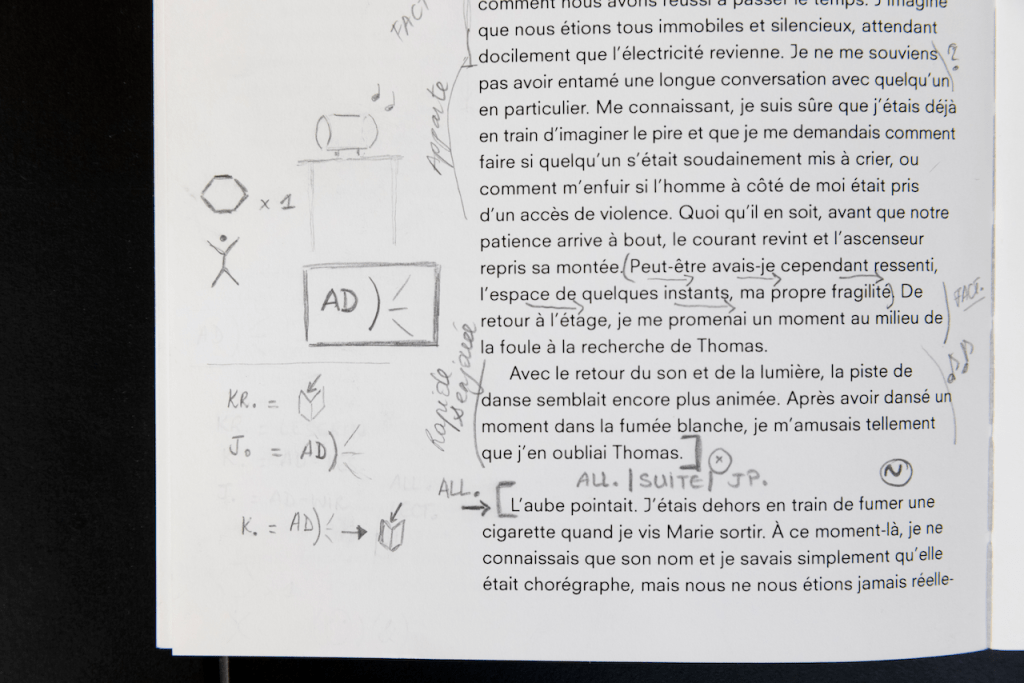 comment nous avons réussi à passer le temps. J'imagine
que nous étions tous immobiles et silencieux, attendant
docilement que l'électricité revienne. Je ne me souviens
pas avoir entamé une longue conversation avec quelqu'un
en particulier. Me connaissant, je suis sûre que j'étais déjà
en train d'imaginer le pire et que je me demandais comment
faire si quelqu'un s'était soudainement mis à crier, ou
comment m'enfuir si l'homme à côté de moi était pris
d'un accès de violence. Quoi qu'il en soit, avant que notre
patience arrive à bout, le courant revint et l'ascenseur
repris sa montée. (Peut-être avais-je cependant ressenti,
l'espace de quelques instants, ma propre fragilité) De
retour à l'étage, je me promenai un moment au milieu de
la foule à la recherche de Thomas.
Avec le retour du son et de la lumière, la piste de
danse semblait encore plus animée. Après avoir dansé un
moment dans la fumée blanche, je m'amusais tellement
que j'en oubliai Thomas.]
ALL. | SUITE | JP.
[L'aube pointait. J'étais dehors en train de fumer une
cigarette quand je vis Marie sortir. À ce moment-là, je ne
connaissais que son nom et je savais simplement qu'elle
était chorégraphe, mais nous ne nous étions jamais réelle-
FACT
?
Apparte
x 1
AD)
FACT.
Rapide
ALL.
KR. =
Jo = AD)
K. = AD) →
N